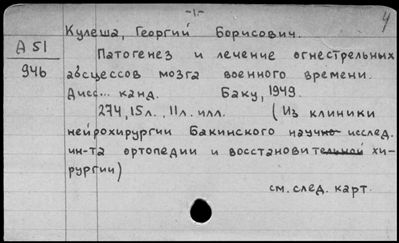 -1-
4
Кулеша, Георгий Борисович.
А 51
946
Патогенез и лечение огнестрельных
абсцессов мозга военного времени.
Дисс... канд. Баку, 1949.
274, 15л., 11л. илл. (Из клиники
нейрохирургии Бакинского научно исслед.
ин-та ортопедии и восстановительной хи-
рургии)
см. след. карт.